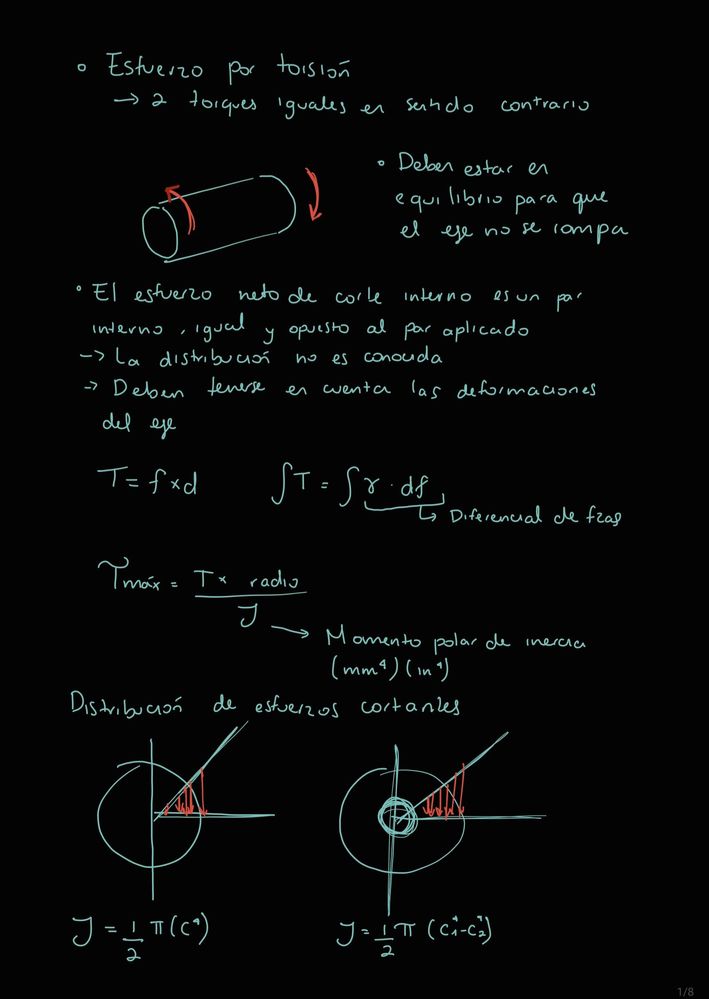 ° Esfuerzo por torsión
→ 2 torques iguales en sentido contrario
° Deben estar en
equilibrio para que
el eje no se rompa
° El esfuerzo neto de corte interno es un par
interno, igual y opuesto al par aplicado
→ La distribución no es conocida
→ Deben tenerse en cuenta las deformaciones
del eje
T = f × d ∫T = ∫r · df
↳ Diferencial de fzas
τmáx = T × radio
J
→ Momento polar de inercia
(mm⁴) (in⁴)
Distribución de esfuerzos cortantes
J = 1/2 π (c⁴) J = 1/2 π (c₁⁴ - c₂⁴)
1/8